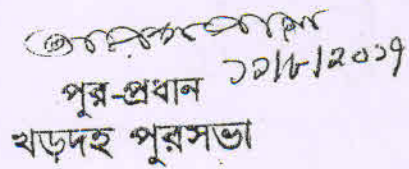 ১২/৮/২০১৭
পুর-প্রধান
খড়দহ পুরসভা